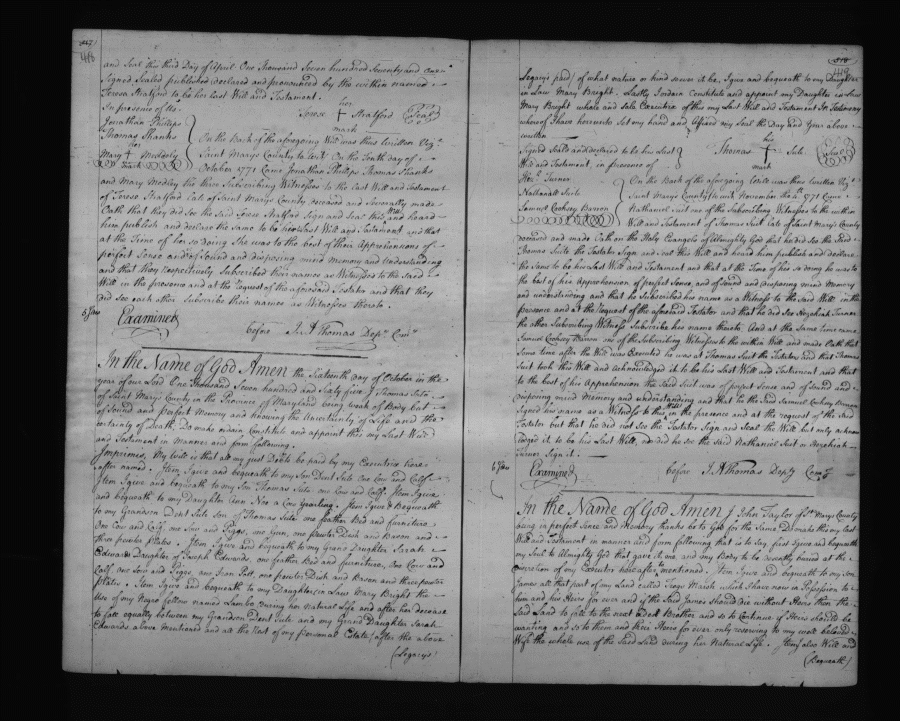 and Seal this third Day of April One Thousand Seven hundred Seventy and one
Signed Sealed published declared and pronounced by the within named
Terese Stratford to be her last Will and Testament.
In presence of Us
her
Terese + Stratford Seal
mark
Jonathan Philips
Thomas Shanks
her
Mary + Medley
mark
On the Back of the aforegoing Will was thus Written Viz.
Saint Marys County to wit On the Tenth day of
October 1771 Came Jonathan Philips Thomas Shanks
and Mary Medley the three Subscribing Witnesses to the Last Will and Testament
of Terese Stratford late of Saint Marys County deceased and Severally made
Oath that they did See the Said Terese Stratford Sign and Seal this Will and heard
him publish and declare the same to be her Last Will and Testament and that
at the Time of her so doing She was to the best of their Apprehensions of
perfect Sense and of Sound and disposing mind Memory and Understanding
and that they respectively Subscribed their names as Witnesses to the Said
Will in the presence and at the request of the aforesaid Testator and that they
did See each other Subscribe their names as Witnesses thereto.
Examined
before Jn. A Thomas Depy. Comy
In the Name of God Amen the Sixteenth day of October in the
year of our Lord One Thousand Seven hundred and Sixty five I Thomas Sute
of Saint Marys County in the Province of Maryland being weak of Body but
of Sound and perfect Memory and knowing the Uncertainty of Life and the
certainty of Death Do make ordain Constitute and appoint this my Last Will
and Testament in Manner and form following.
Imprimis. My Will is that all my just Debts be paid by my Executrix here
after named. Item I give and bequeath to my Son Dent Sute One Cow and Calf
Item I give and bequeath to my Son Thomas Sute one Cow and Calf. Item I give
and bequeath to my Daughter Ann Noe a Cow Yearling. Item I give & Bequeath
to my Grandson Dent Sute Son of Thomas Sute one feather Bed and furniture
One Cow and Calf, one Sow and Piggs, one Gun, one Pewter Dish one Bason and
three pewter plates. Item I give and bequeath to my Grand Daughter Sarah
Edwards Daughter of Joseph Edwards, one feather Bed and furniture, One Cow and
Calf, one Sow and Piggs, one Iron Pott, one pewter Dish and Bason and three pewter
Plates. Item I give and bequeath to my Daughter in Law Mary Bright the
Use of my Negro fellow named Sambo during her Natural Life and after her decease
to fall equally between my Grandson Dent Sute and my Grand Daughter Sarah
Edwards above Mentioned and all the Rest of my personal Estate (after the above
(Legacys)
Legacys paid) of what nature or kind soever it be, I give and bequeath to my Daughter
in Law Mary Bright. Lastly I ordain Constitute and appoint my Daughter in Law
Mary Bright whole and Sole Executrix of this my Last Will and Testament In Testimony
whereof I have hereunto Set my hand and Affixed my Seal the Day and Year above
written
Signed Seald and declared to be his Last
Will and Testament, in presence of
his
Thomas + Sute Seal
mark
Turner
Nathaniel Suit
Samuel Cooksey Barron
On the Back of the aforegoing Will was thus written Viz.
Saint Marys County to wit November the 1771 Came
Nathaniel Suit one of the Subscribing Witnesses to the within
Will and Testament of Thomas Suit late of Saint Marys County
deceased and made Oath on the Holy Evangels of Almighty God that he did See the Said
Thomas Suite the Testator Sign and Seal this Will and heard him publish and declare
the Same to be his Last Will and Testament and that at the Time of his so doing he was to
the best of his Apprehension of perfect Sense, and of Sound and disposing mind Memory
and understanding and that he Subscribed his name as a Witness to the Said Will in the
presence and at the request of the aforesaid Testator and that he did See Hezekiah Turner
the other Subscribing Witness Subscribe his name thereto And at the Same time came
Samuel Cooksey Barron one of the Subscribing Witnesses to the within Will and made Oath that
Some time after the Will was Executed he was at Thomas Suit the Testators and that Thomas
Suit took this Will and acknowledged it to be his Last Will and Testament and that
to the best of his Apprehension the Said Suit was of perfect Sense and of Sound and
disposing mind Memory and understanding and that he the Said Samuel Cooksey Barron
Signed his name as a Witness to this Will in the presence and at the request of the Said
Testator but that he did not See the Testator Sign and Seal the Will but only acknow
ledged it to be his Last Will, nor did he See the Said Nathaniel Suit or Hezekiah
Turner Sign it.
Examined
before J. A Thomas Depy Comy
In the Name of God Amen I John Taylor of St. Marys County
being in perfect Sense and Memory thanks be to God for the Same Do make this my last
Will and Testament in manner and form following that is to Say, first I give and bequeath
my Soul to Almighty God that gave it me and my Body to be decently buried at the
discretion of my Executor hereafter mentioned. Item I give and bequeath to my Son
James all that part of my Land called Marsh which I have now in Possession to
him and his Heirs for ever and if the Said James Should Die without Heirs then the
Said Land to fall to the next Eldest Brother and so to Continue if Heirs Should be
wanting and so to them and their Heirs for ever only reserving to my well beloved
Wife the whole use of the Said Land during her Natural Life. Item also Will and
(Bequeath)